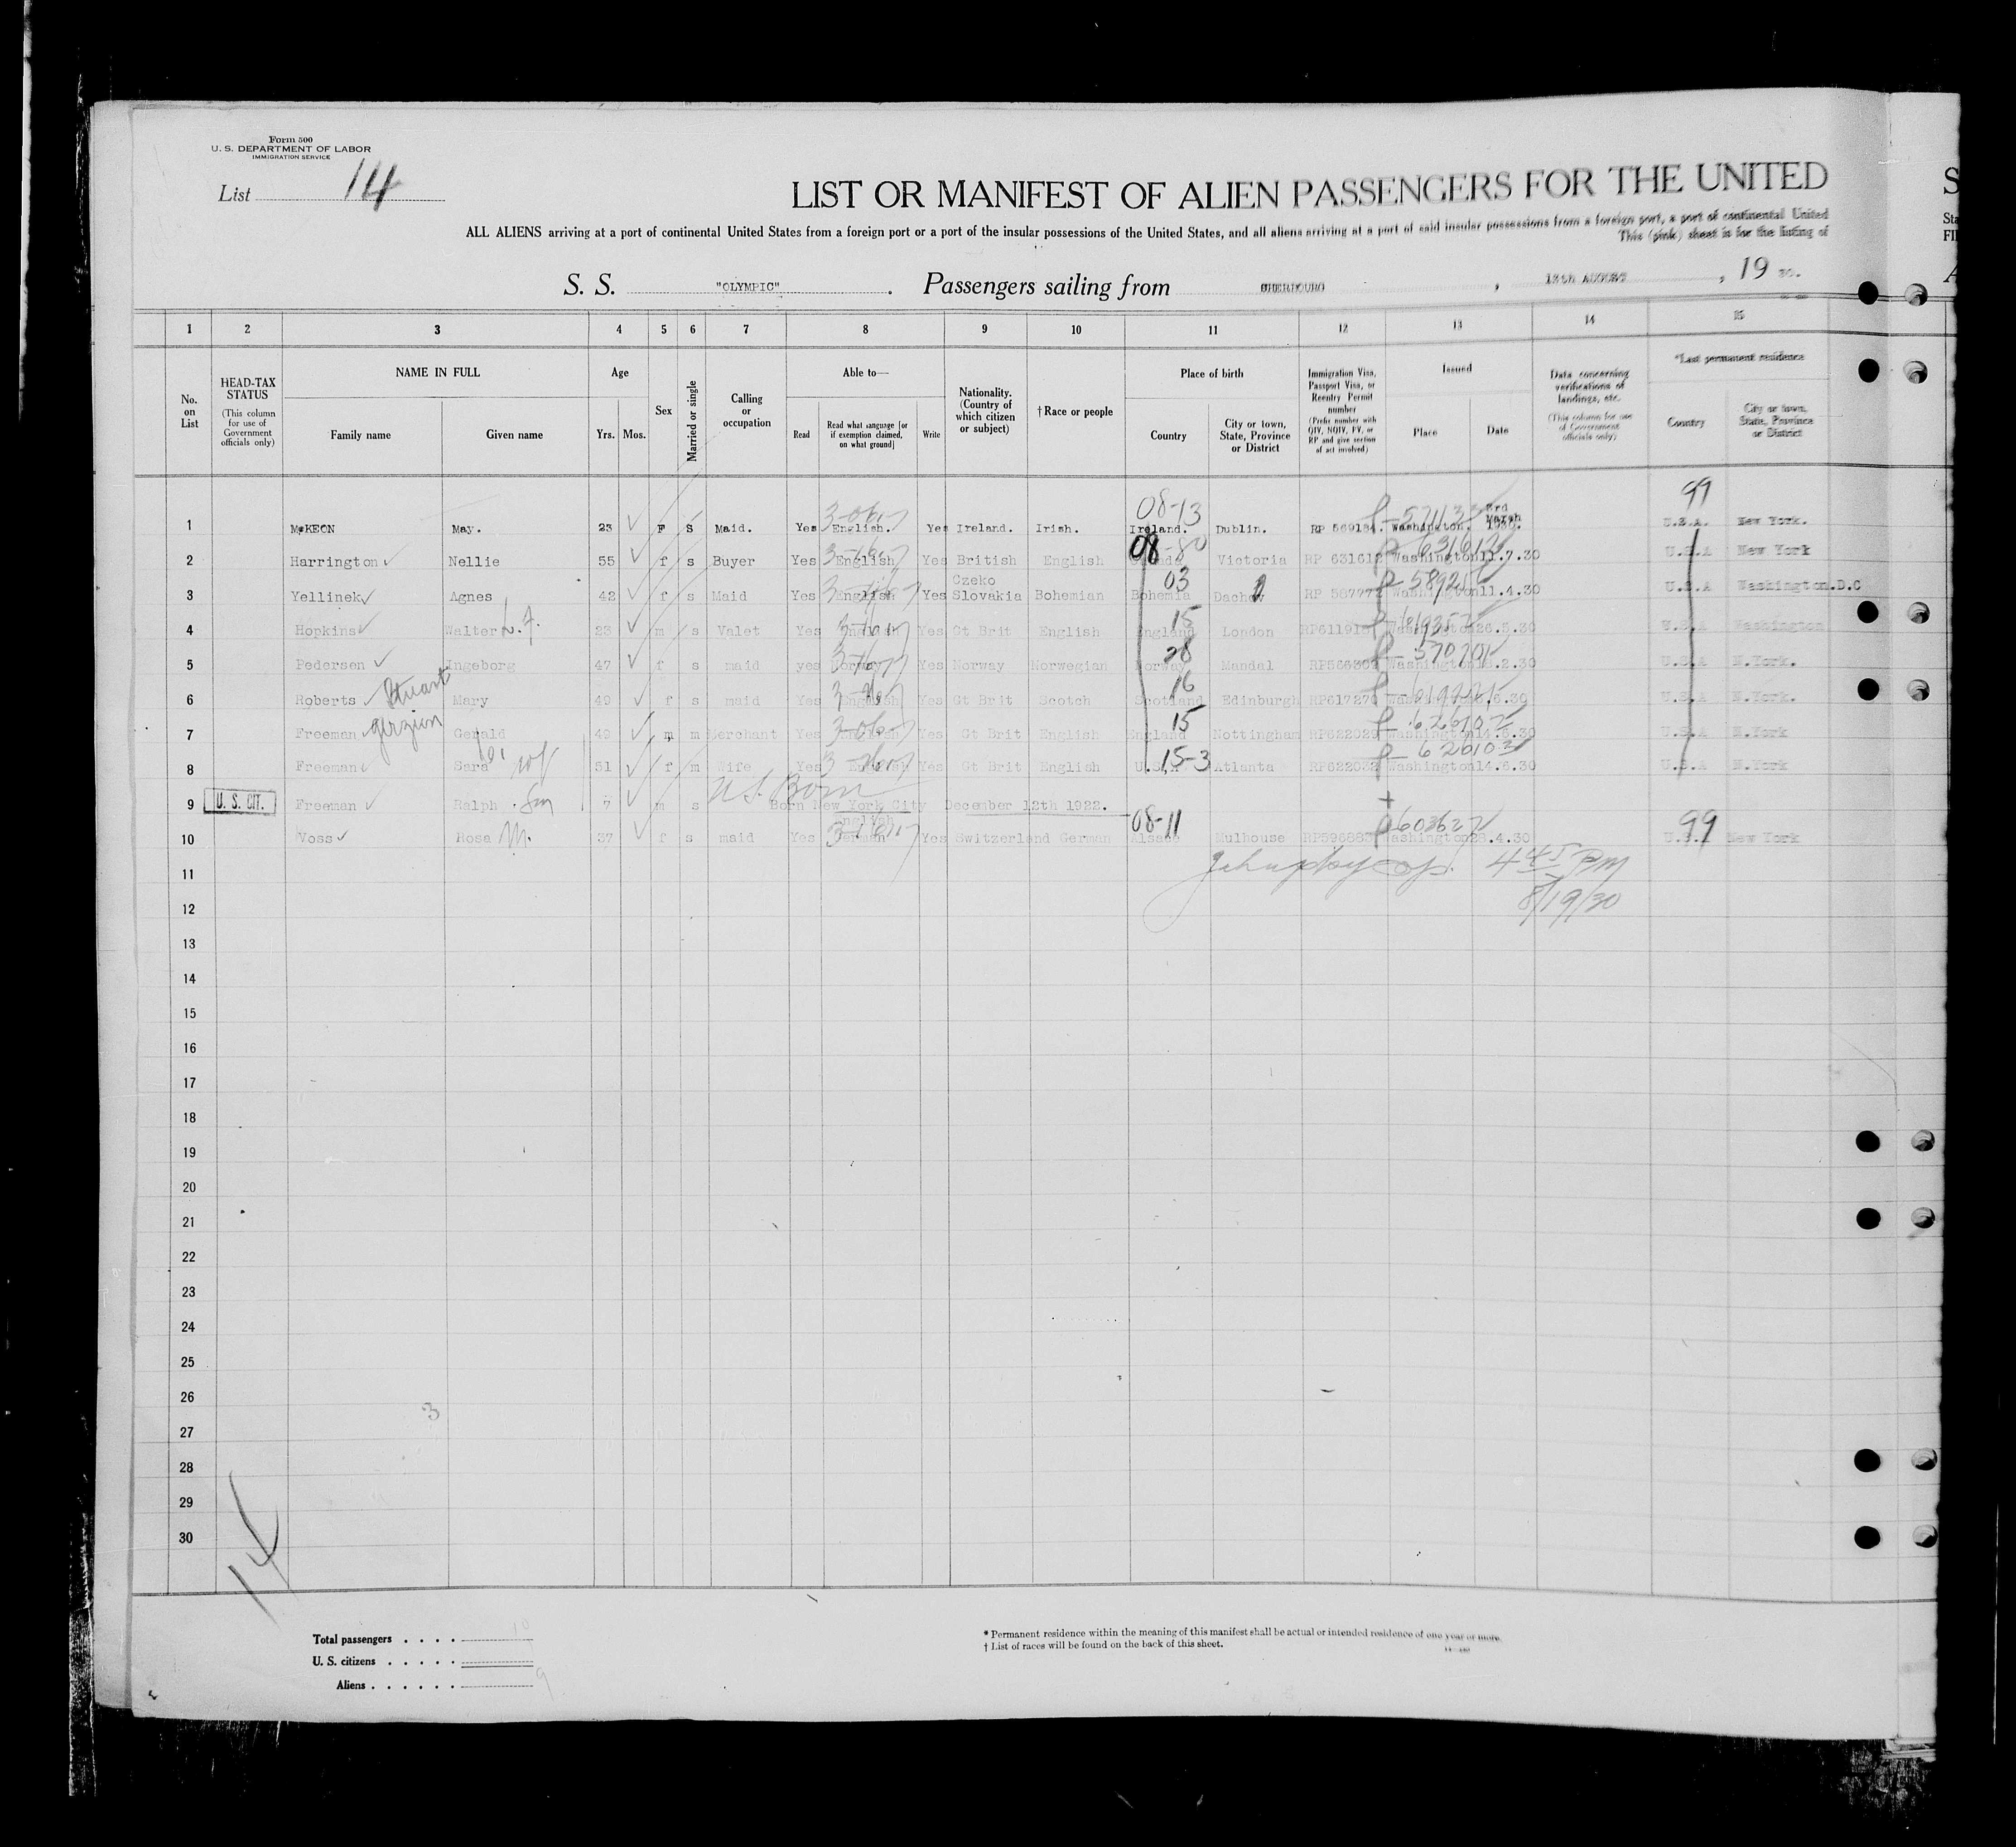 Form 500
U. S. DEPARTMENT OF LABOR
IMMIGRATION SERVICE
List 14
LIST OR MANIFEST OF ALIEN PASSENGERS FOR THE UNITED
ALL ALIENS arriving at a port of continental United States from a foreign port or a port of the insular possessions of the United States, and all aliens arriving at a port of said insular possessions from a foreign port, a port of continental United
This (pink) sheet is for the listing of
S. S. "OLYMPIC" . Passengers sailing from CHERBOURG , 13th AUGUST , 19 30.
1 2 3 4 5 6 7 8 9 10 11 12 13 14 15
No. on List
HEAD-TAX STATUS (This column for use of Government officials only)
NAME IN FULL Family name Given name
Age Yrs. Mos.
Sex
Married or single
Calling or occupation
Able to— Read Read what language [or if exemption claimed, on what ground] Write
Nationality. (Country of which citizen or subject)
† Race or people
Place of birth Country City or town, State, Province or District
Immigration Visa, Passport Visa, or Reentry Permit number (Prefix number with QIV, NQIV, PV, or RP and give section of act involved)
Issued Place Date
Data concerning verifications of landings, etc. (This column for use of Government officials only)
*Last permanent residence Country City or town, State, Province or District
08-13 99
1 McKEON May. 23 F S Maid. Yes English. Yes Ireland. Irish. Ireland. Dublin. RP 569184. Washington. 3rd March 1930. U.S.A. New York.
2 Harrington Nellie 55 f s Buyer Yes English Yes British English Victoria RP 631612 Washington 11.7.30 U.S.A New York
3 Yellinek Agnes 42 f s Maid Yes English Yes Czeko Slovakia Bohemian Bohemia 03 RP 587772 Washington 11.4.30 U.S.A Washington.D.C
4 Hopkins Walter L.F. 23 m s Valet Yes English Yes Gt Brit English England 15 London Washington 26.5.30 U.S.A Washington
5 Pedersen Ingeborg 47 f s maid yes Norway Yes Norway Norwegian Norway 28 Mandal Washington .2.30 U.S.A N.York.
6 Roberts Stuart Mary 49 f s maid Yes English Yes Gt Brit Scotch Scotland 16 Edinburgh RP617270 Washington .6.30 U.S.A N.York.
7 Freeman Gerald 49 m m Merchant Yes English Yes Gt Brit English England 15 Nottingham RP622029 Washington 14.6.30 U.S.A N.York
8 Freeman Sara wf 51 f m Wife Yes English Yes Gt Brit English U.S.A. 15-3 Atlanta RP622032 Washington 14.6.30 U.S.A N.York
9 U. S. CIT. Freeman Ralph Son 7 m s U.S. Born Born New York City December 12th 1922.
10 Voss Rosa M. 37 f s maid Yes English German Yes Switzerland German Alsace 08-11 Mulhouse Washington 28.4.30 99 U.S.A New York
11 4 45 PM
12 8/19/30
13
14
15
16
17
18
19
20
21
22
23
24
25
26
3
27
28
29
30
14
Total passengers . . . . 10
U. S. citizens . . . . .
Aliens . . . . . . 9
* Permanent residence within the meaning of this manifest shall be actual or intended residence of one year or more.
† List of races will be found on the back of this sheet.